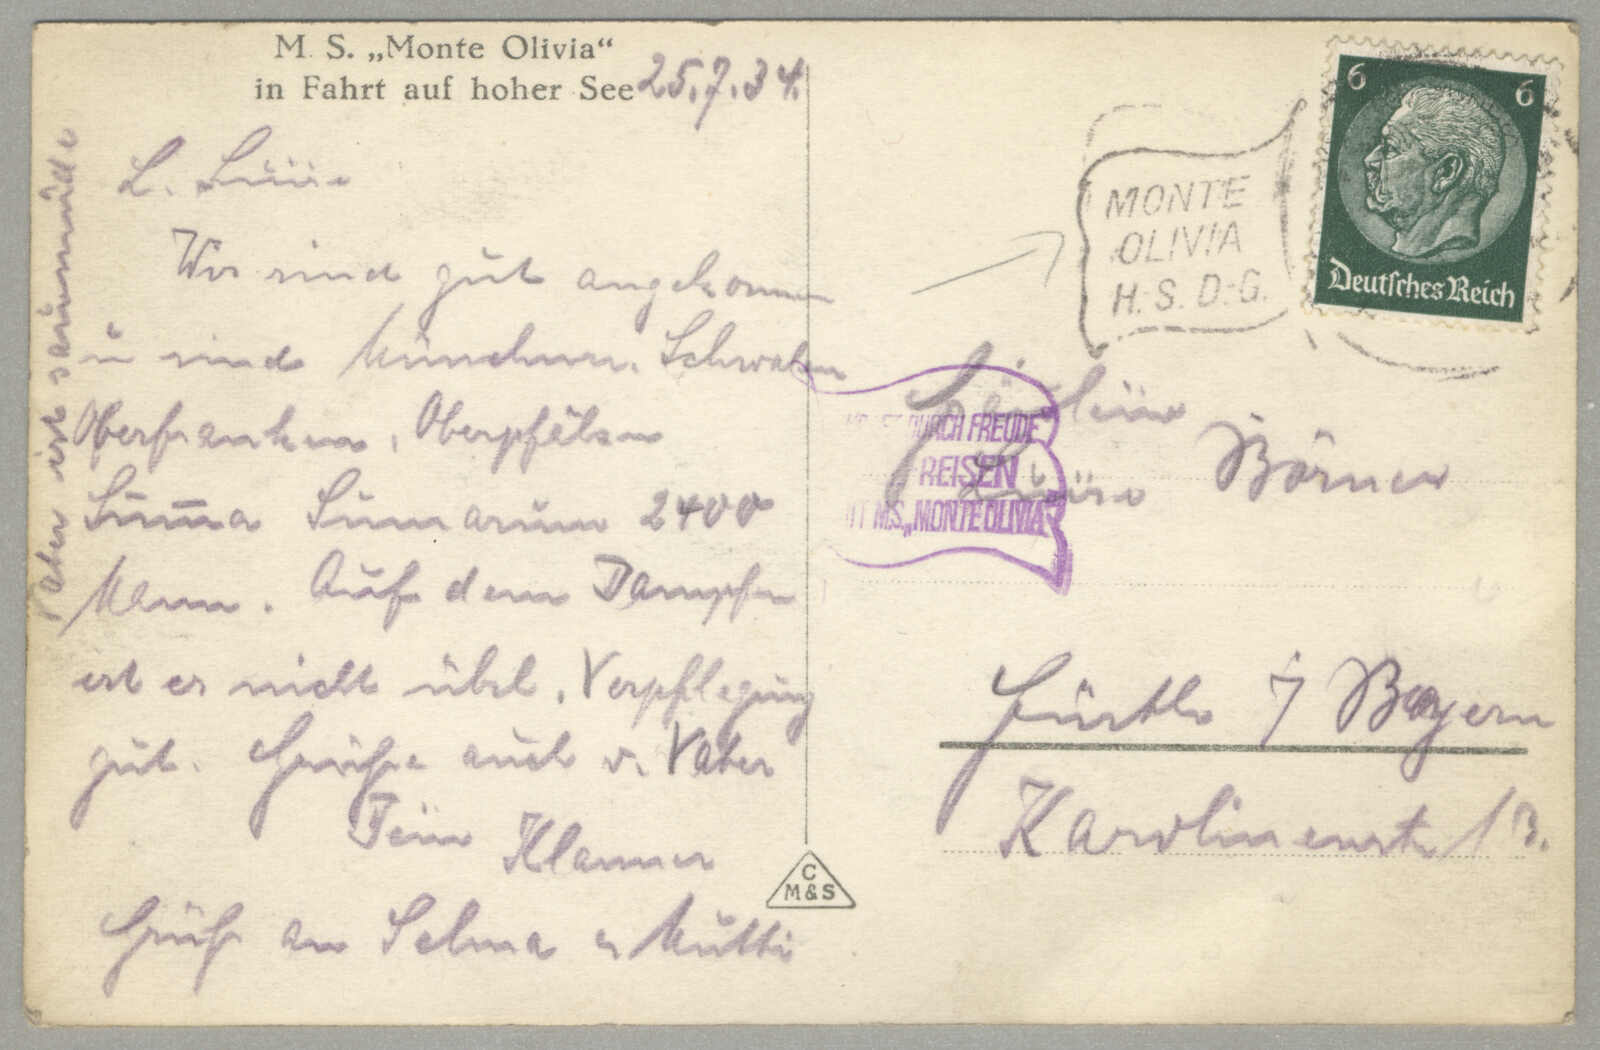 M. S. „Monte Olivia“
in Fahrt auf hoher See 25.7.34.
L. Luise
Wir sind gut angekommen
u sind Münchner, Schwaben
Oberfranken, Oberpfälzer
Summa Sumarum 2400
Mann. Auf dem Dampfer
ist es nicht übel, Verpflegung
gut. Grüße auch v. Vater
Dein
Gruß an Selma u Mutti
Vater ist saumüde
C
M & S
6 6
Deutsches Reich
MONTE
OLIVIA
H. S. D. G.
DURCH FREUDE
REISEN
M.S. „MONTE OLIVIA“
Fräulein
Börner
Fürth i/ Bayern
Karolinenstr 13.